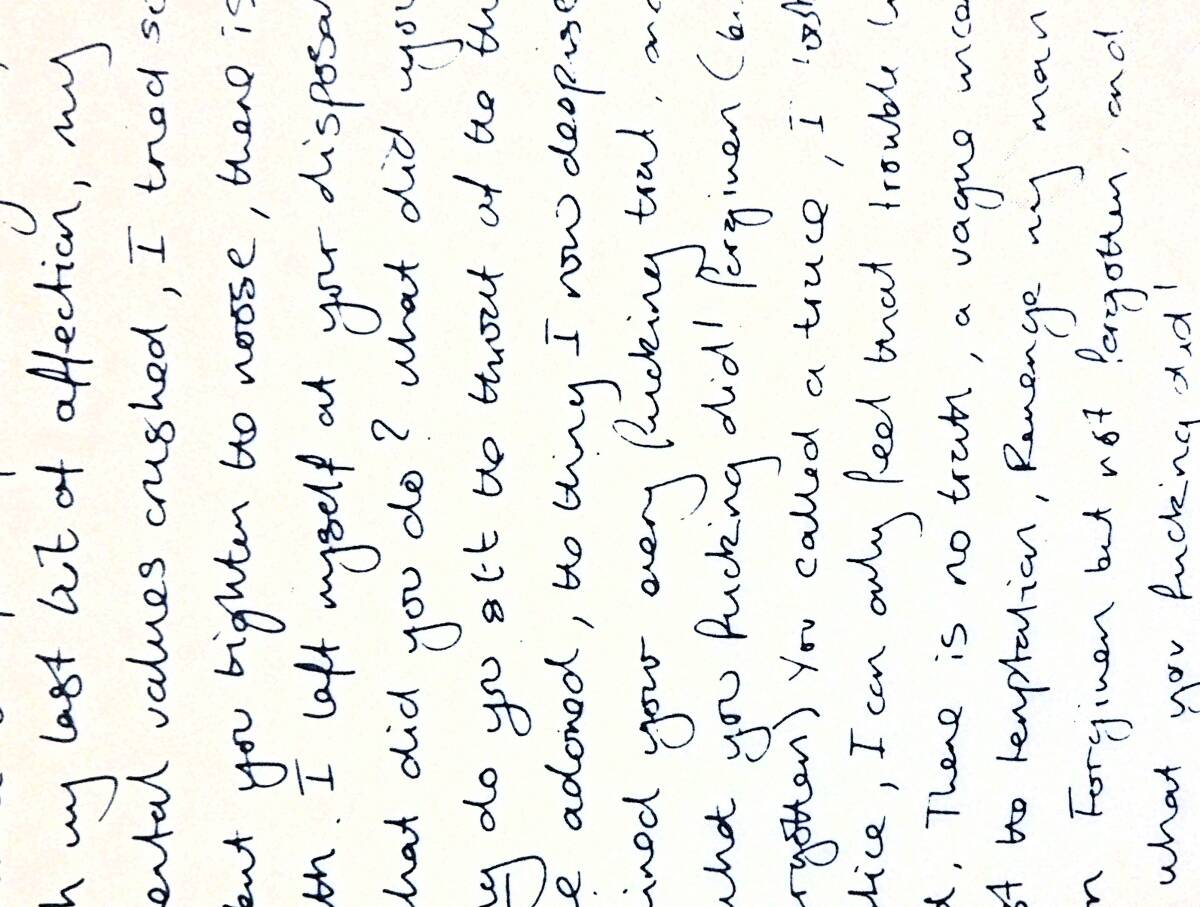 h my last bit of affection, my
ental values crushed, I tried so
bent you tighten the noose, there is
th. I left myself at your disposa
hat did you do? what did you
y do you sit the throat of the th
e adored, the thing I now despise
ined your every fucking trait, and
what you fucking did! Forgiven (bu
rgotten) You called a truce, I lost
tice, I can only feel that trouble
d, There is no truth, a vague
st to temptation, Revenge my man
n Forgiven but not forgotten, and
what you fucking did!